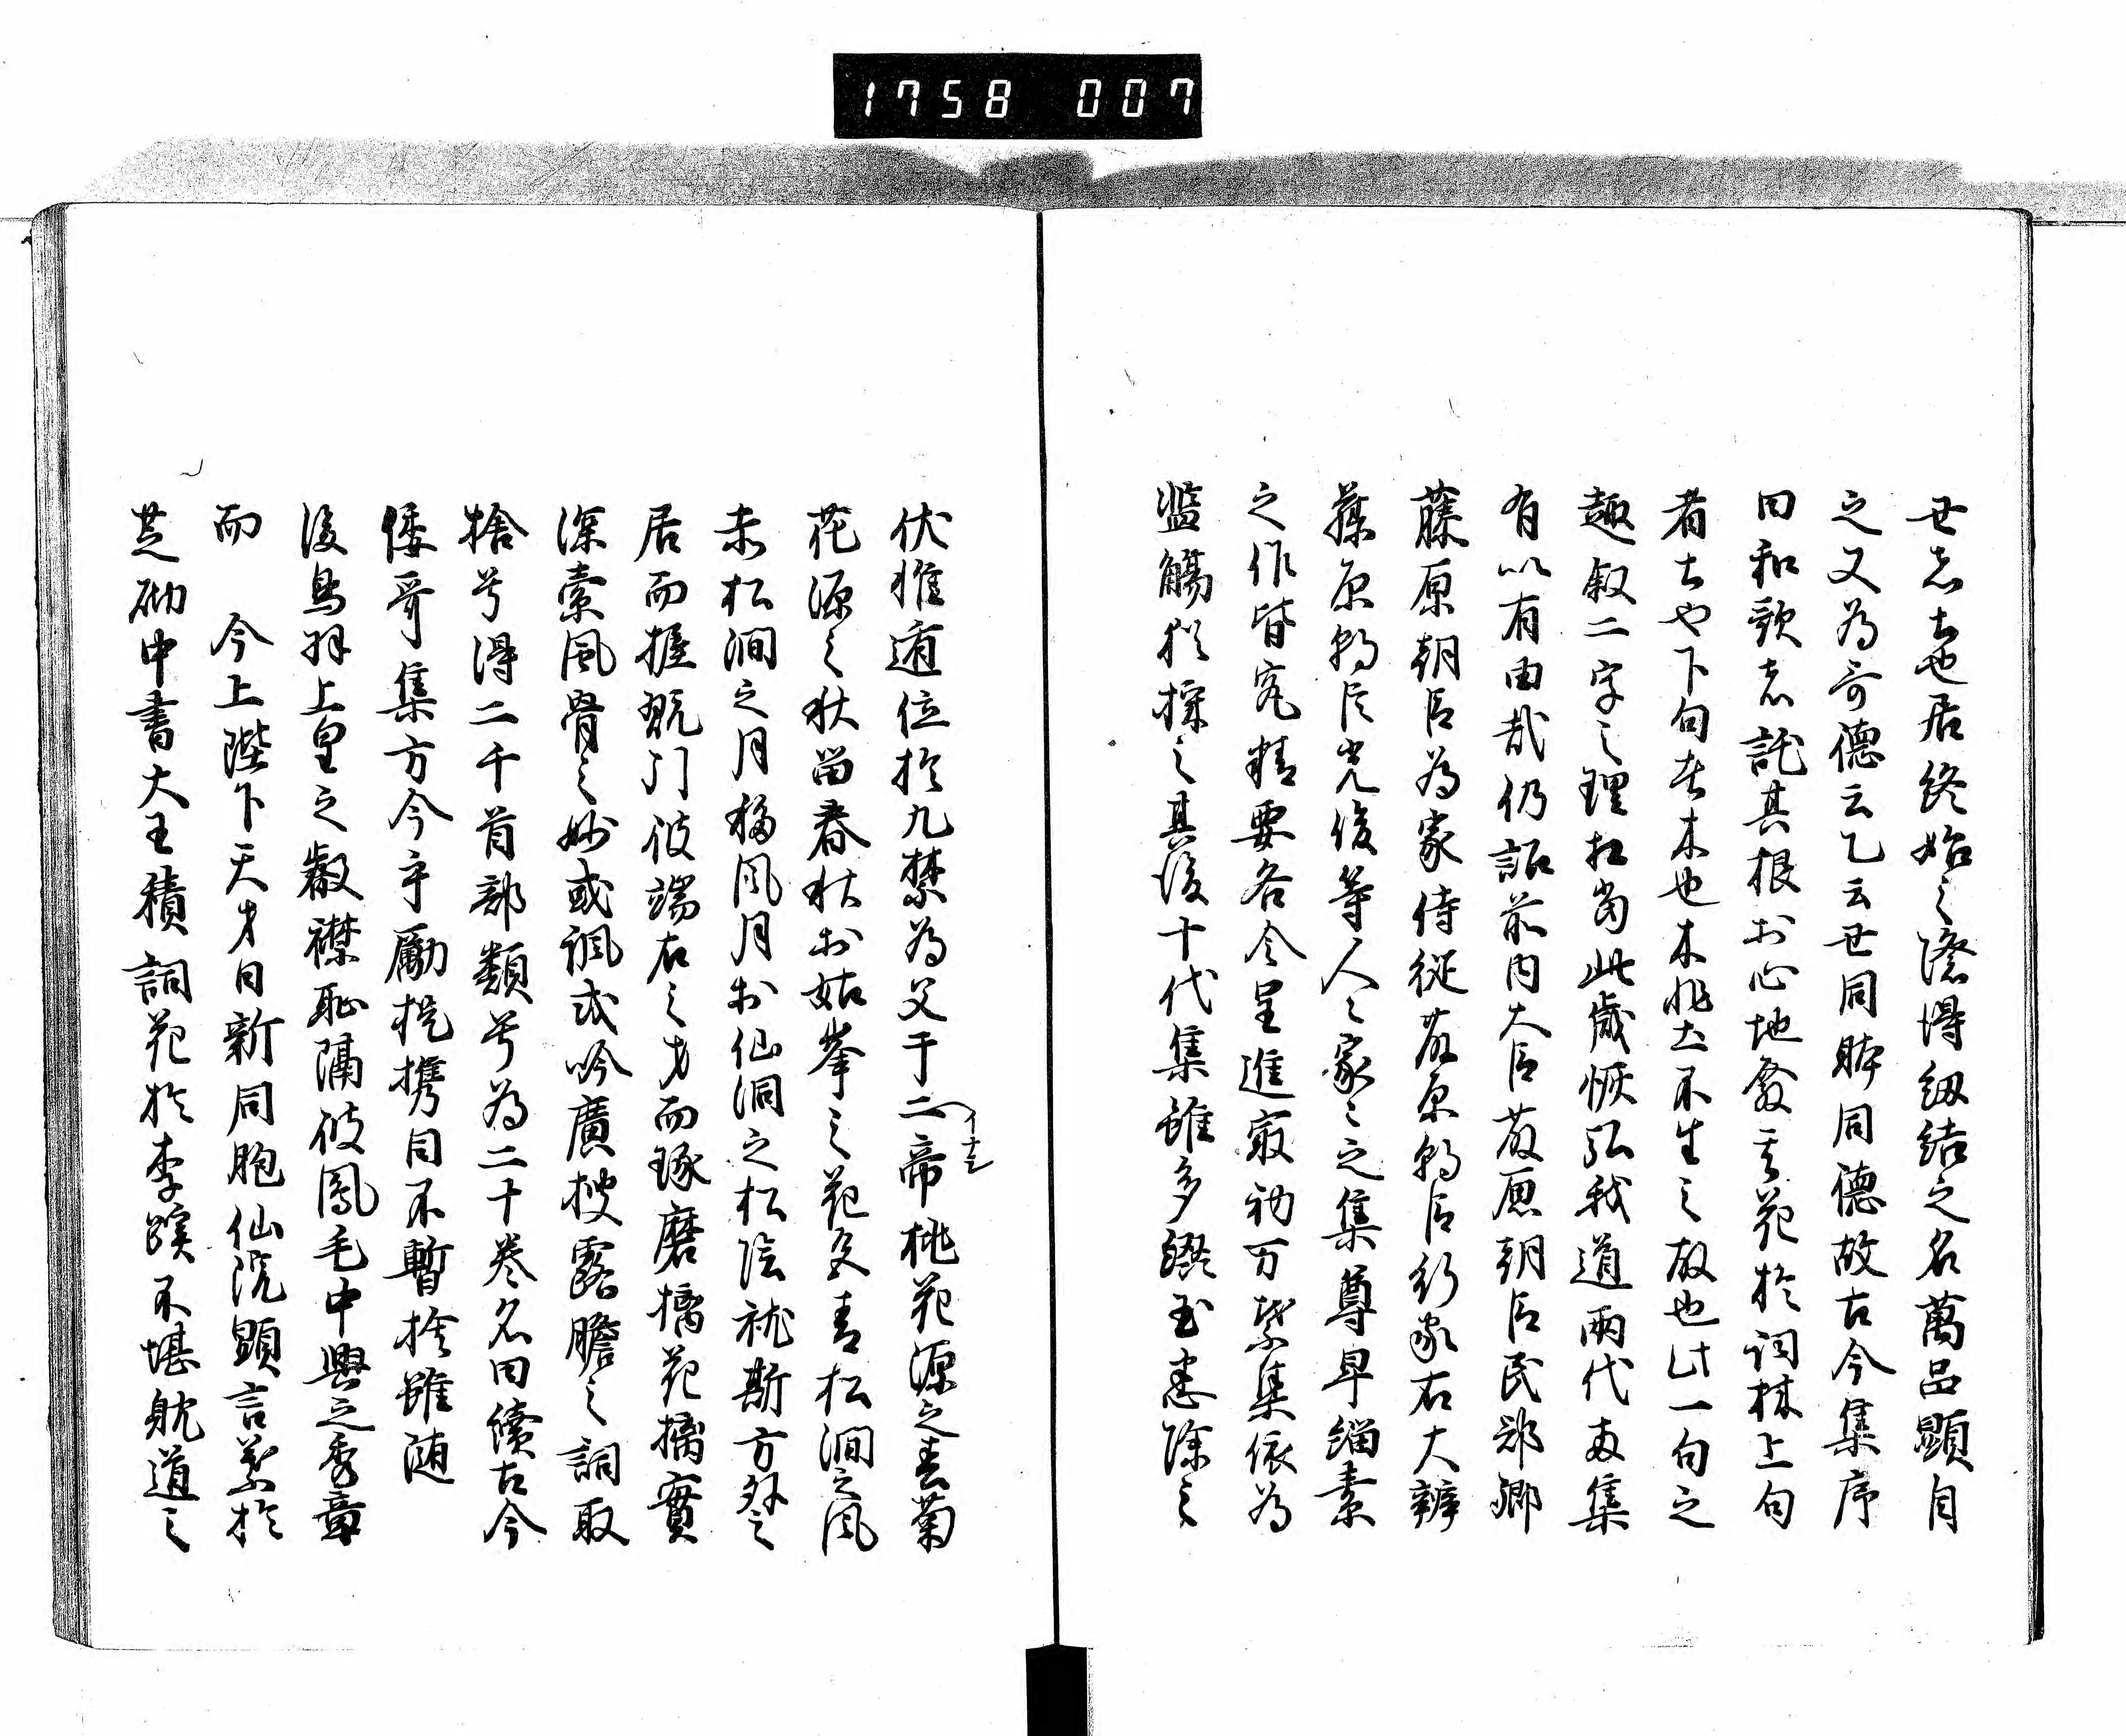 1758 007
世志士也居終始之際得紐結之名萬品顕自
之又為哥德云乙云世同躰同德故古今集序
曰和歌者託其根於心地發其花於詞林上句
者士也下句者木也木非土不生之故也此一句之
趣叙二字之理在当此歳恢弘我道両代母集
有以有由哉仍詔前内大臣藤原朝臣民部卿
藤原朝臣為家侍従藤原朝臣行家右大辨
藤原朝臣光俊等人之家之之集尊卑緇素
之作皆究精要各令呈進最初万葉集依為
監觴猶採之其後十代集雖多綴玉悉除之
伏惟遁位於九禁為父于二帝桃花源之春菊
花源之秋留春秋於姑峯之花文青松澗之風
赤松澗之月携風月於仙洞之松陰就斯方外之
居而握瓱門彼端右之才而琢磨摛花摛實
深索風骨之妙或諷或吟廣捜露膽之詞取
捨兮得二千首部類兮為二十巻名曰續古今
倭哥集方今手勵提携目不暫捨雖随
後鳥羽上皇之叡襟恥隔彼鳳毛中興之秀章
而　今上陛下天才日新同胞仙院顕言葉於
芝砌中書大王積詞花於李蹊不堪躭道之